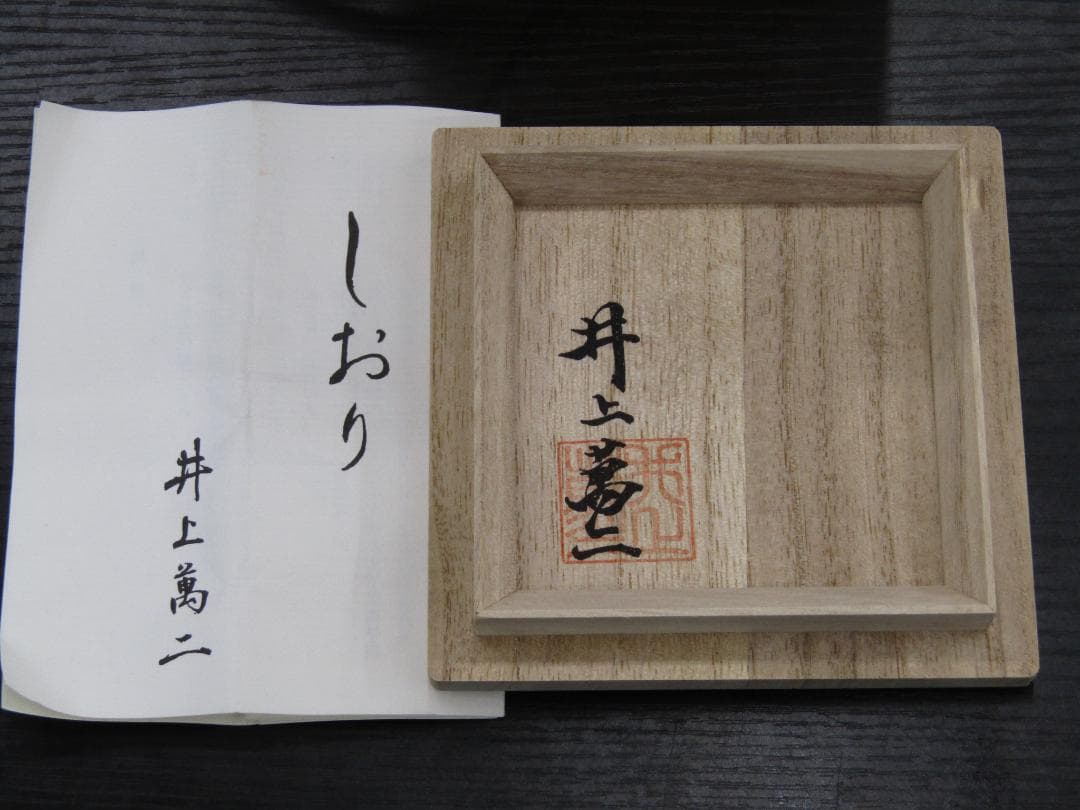 しおり
井上萬二
井上萬二